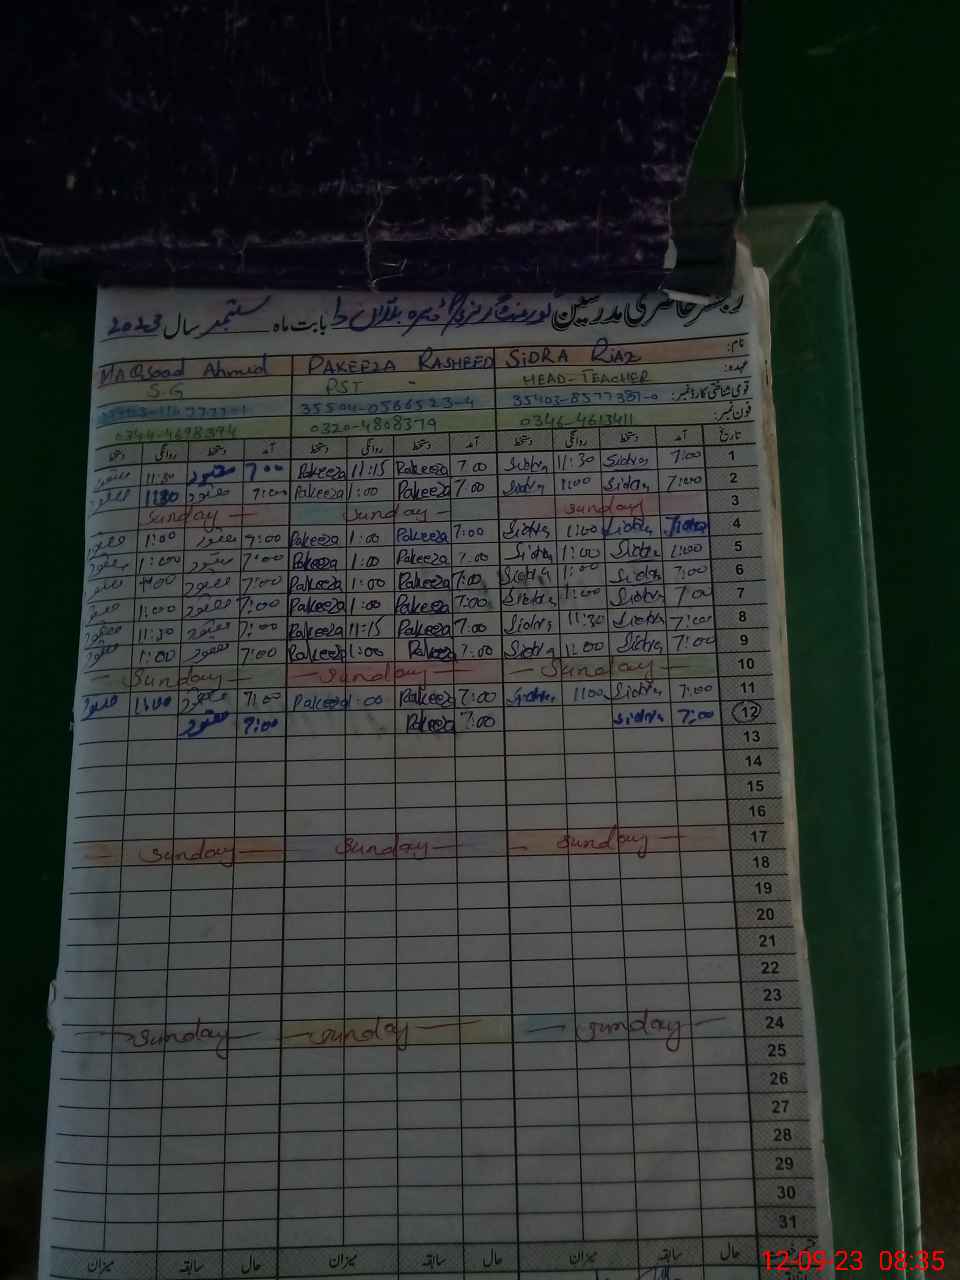 رجسٹر حاضری مدرسین گورنمنٹ بابت ماہ ستمبر سال 2023
نام: SIDRA RIAZ PAKEEZA RASHEED MAQSOOD Ahmed
عہدہ: HEAD-TEACHER PST S.G
قومی شناختی کارڈ نمبر: 35504-0566523-4
فون نمبر: 0346-4613411 0320-4808379 0344-4698394
تاریخ آمد دستخط روانگی دستخط آمد دستخط روانگی دستخط آمد دستخط روانگی دستخط
1 7:00 Sidra 11:30 Sidra 7:00 Pakeeza 11:15 Pakeeza 7:00 مقصود 11:30 مقصود
2 7:00 Sidra 1:00 Sidra 7:00 Pakeeza 1:00 Pakeeza 7:00 مقصود مقصود
3 Sunday Sunday Sunday
4 Sidra 1:00 Sidra 7:00 Pakeeza 1:00 Pakeeza 7:00 مقصود 1:00 مقصود
5 Sidra 1:00 Sidra 7:00 Pakeeza 1:00 Pakeeza 7:00 مقصود 1:00 مقصود
6 7:00 Sidra 1:00 Sidra 7:00 Pakeeza 1:00 Pakeeza 7:00 مقصود مقصود
7 7:00 Sidra 1:00 Sidra 7:00 Pakeeza 1:00 Pakeeza 7:00 مقصود 1:00 مقصود
8 7:00 Sidra 11:30 Sidra 7:00 Pakeeza 11:15 Pakeeza 7:00 مقصود 11:30 مقصود
9 7:00 Sidra 1:00 Sidra 7:00 Pakeeza 1:00 Pakeeza 7:00 مقصود 1:00 مقصود
10 Sunday Sunday Sunday
11 7:00 Sidra 1:00 Sidra 7:00 Pakeeza 1:00 Pakeeza 7:00 مقصود مقصود
12 7:00 Sidra 7:00 Pakeeza 7:00 مقصود
13
14
15
16
17 Sunday Sunday Sunday
18
19
20
21
22
23
24 Sunday Sunday Sunday
25
26
27
28
29
30
31
حال سابقہ میزان حال سابقہ میزان حال سابقہ میزان
12-09-23 08:35